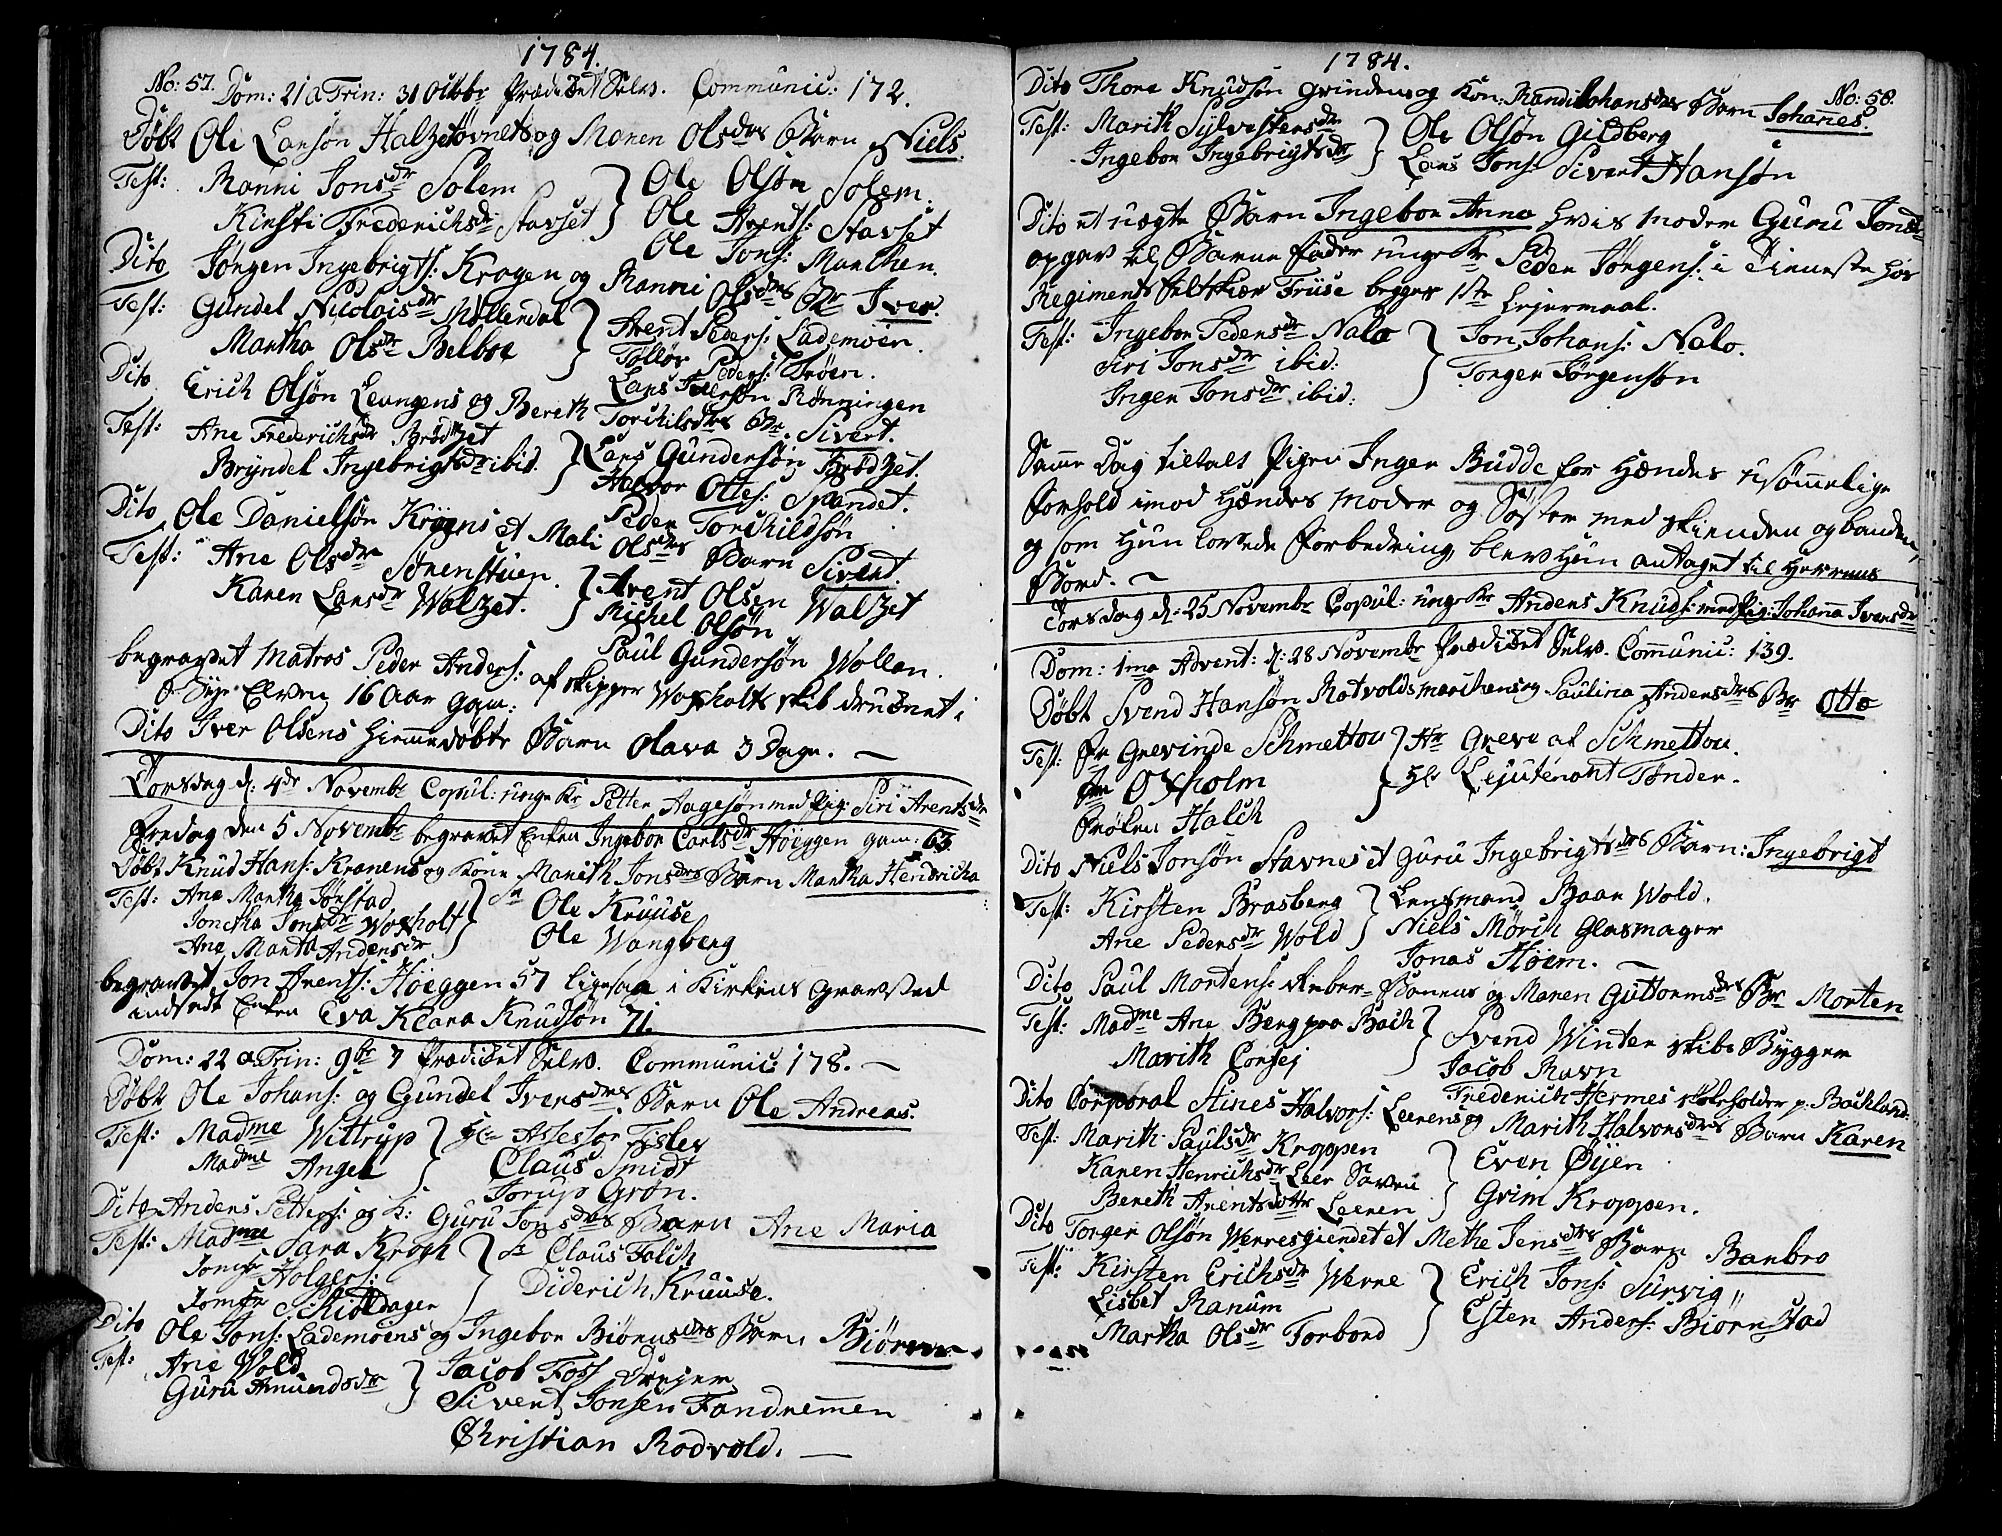 1784.
No: 57. Dom: 21 a Trin: 31 Octbr Prædiket Selv. Communic: 172.
Døbt Ole Larsøn Halzetøvnets og Maren Olsdrs Barn Niels.
Test: Ranni Jonsdr Solem } Ole Olsøn Solem.
Kirsti Frederichsdr: Stavset } Ole Arents: Stavset
Ole Jons: Munchen.
Dito Jørgen Ingebrigts: Kragen og Ranni Olsdrs Br Iver.
Test: Gundel Nicolaisdr Møllendal } Arent Peders: Lademoen.
Martha Olsdr Belboe } Tollør Peders: Troen.
Lars Iversøn Rønningen
Dito Erich Olsøn Leungens og Bereth Torchilsdrs Br. Sivert.
Test: Ane Frederichsdr Brødzet } Lars Gundersøn Brødzet.
Bryndel Ingebrigtsdr ibid. } Halvor Ottes: Spandet.
Peder Torchildsøn
Dito Ole Danielsøn Krygens et Mali Olsdrs Barn Sivert.
Test: Ane Olsdr Sørenstuen. } Arent Olsen Walzet
Karen Larsdr Walzet. } Michel Olsøn
Paul Gundersøn Wollan.
begravet Matros Peder Anders: af skipper Woxholts skib druknet i
Bye Elven 16 Aar gam:
Dito Iver Olsens hiemmedøbte Barn Olava 3 Dage.
Torsdag d: 4de Novembr Copul: unge Kr Petter Aagesøn med Pig: Siri Arentsdr
Fredag den 5 Novembr begravet Enken Ingebor Carlsdr Høeggen gam: 63.
Døbt Knud Hans: Kranens og Kone Marith Jonsdrs Barn Martha Hendricha
Test: Ane Martha Jørstad } Sr Ole Kruuse
Jonetha Jonsdr Woxholt } Ole Wangberg
Ane Marta Andersdr
begravet Jon Arents: Høeggen 57 ligesaa i Kirkens Gravsted
indsadt Enken Eva Klara Knudsøn 71.
Dom: 22 a Trin: 9br 7 Prædiket Selv. Communic: 178.
Døbt Ole Johans: og Gundel Iversdrs Barn Ole Andreas.
Test: Madme Wittrup } Hr Assessor Tisler
Madme Angel } Claus Smidt
Torup Grøn.
Dito Anders Petters: og K: Guru Jonsdrs Barn Ane Maria
Test: Madme Sara Krogh } Sr Claus Falch
Jomfr Holgers: } Diderich Kruuse.
Jomfr Schiøldager
Dito Ole Jons: Lademoens og Ingebor Biørnsdrs Barn Biørn
Test: Ane Wold } Jacob Foss Dreyer
Guru Amundsdr } Sivert Jonsen Fandremmen
Christian Rodvold.
1784.
No: 58.
Dito Thore Knudsøn Grindens og Kon: Randi Johansdrs Barn Johanes.
Test: Marith Sylvestersdr } Ole Olsøn Gildberg
Ingebor Ingebrigtsdr } Lars Jons: Sivert Hansøn
Dito et uægte Barn Ingebor Anna hvis Moder Guru Jonsdr
opgav til Barne fader unge Kr Peder Jørgens: i Tieneste hos
Regiments feltskiær Friise begges 1ste Leyermaal.
Test: Ingebor Pedersdr Nalo } Jon Johans: Nalo.
Siri Jonsdr ibid: } Torger Jørgensøn
Inger Jonsdr ibid:
Samme Dag tiltalt Pigen Inger Budde for Hændes usømmelige
Forhold imod Hændes Moder og Søster med skienden og banden,
og som Hun lovede Forbedring blev Hun antaget til Herrens
Bord.
Torsdag d: 25 Novembr Copul: unge Kr Anders Knuds: med Pig: Johanna Iversdr
Dom: 1ma Advent: d: 28 Novembr Prædiket Selv. Communic: 139.
Døbt Svend Hansøn Rotvoldsmarchens og Paulina Andersdrs Br Otto
Test: Fr Grevinde Schmettou } Hr Greve af Schmettou.
Fru Oxholm } Hr Lejutenant Tønder.
Frøken Halch
Dito Niels Jonsøn Stavnes et Guru Ingebrigtsdrs Barn: Ingebrigt
Test: Kirsten Brasberg } Lensmand Baar Wold.
Ane Pedersdr Wold } Niels Mørch Glasmager
Jonas Høem.
Dito Paul Mortens: Reber-Banens og Maren Guttormsdrs Br Morten
Test: Madme Ane Berg paa Bach } Svend Winter Skibs Bygger
Marith Corsej } Jacob Ravn
Frederich Hermes Støkeholder p. Backland.
Dito Corporal Stines Halvors: Leerens og Marith Halvorsdrs Barn Karen
Test: Marith Paulsdr Kroppen } Even Øijen
Karen Henrichsdr Leer Saven } Grim Kroppen.
Bereth Arentsdattr Leeren
Dito Torger Olsøn Werresgiendet et Methe Jensdrs Barn Barbro
Test: Kirsten Erichsdr Werne } Erich Jons: Survig,,
Lisbet Ranum } Esten Anders: Biørnstad
Martha Olsdr Torbord